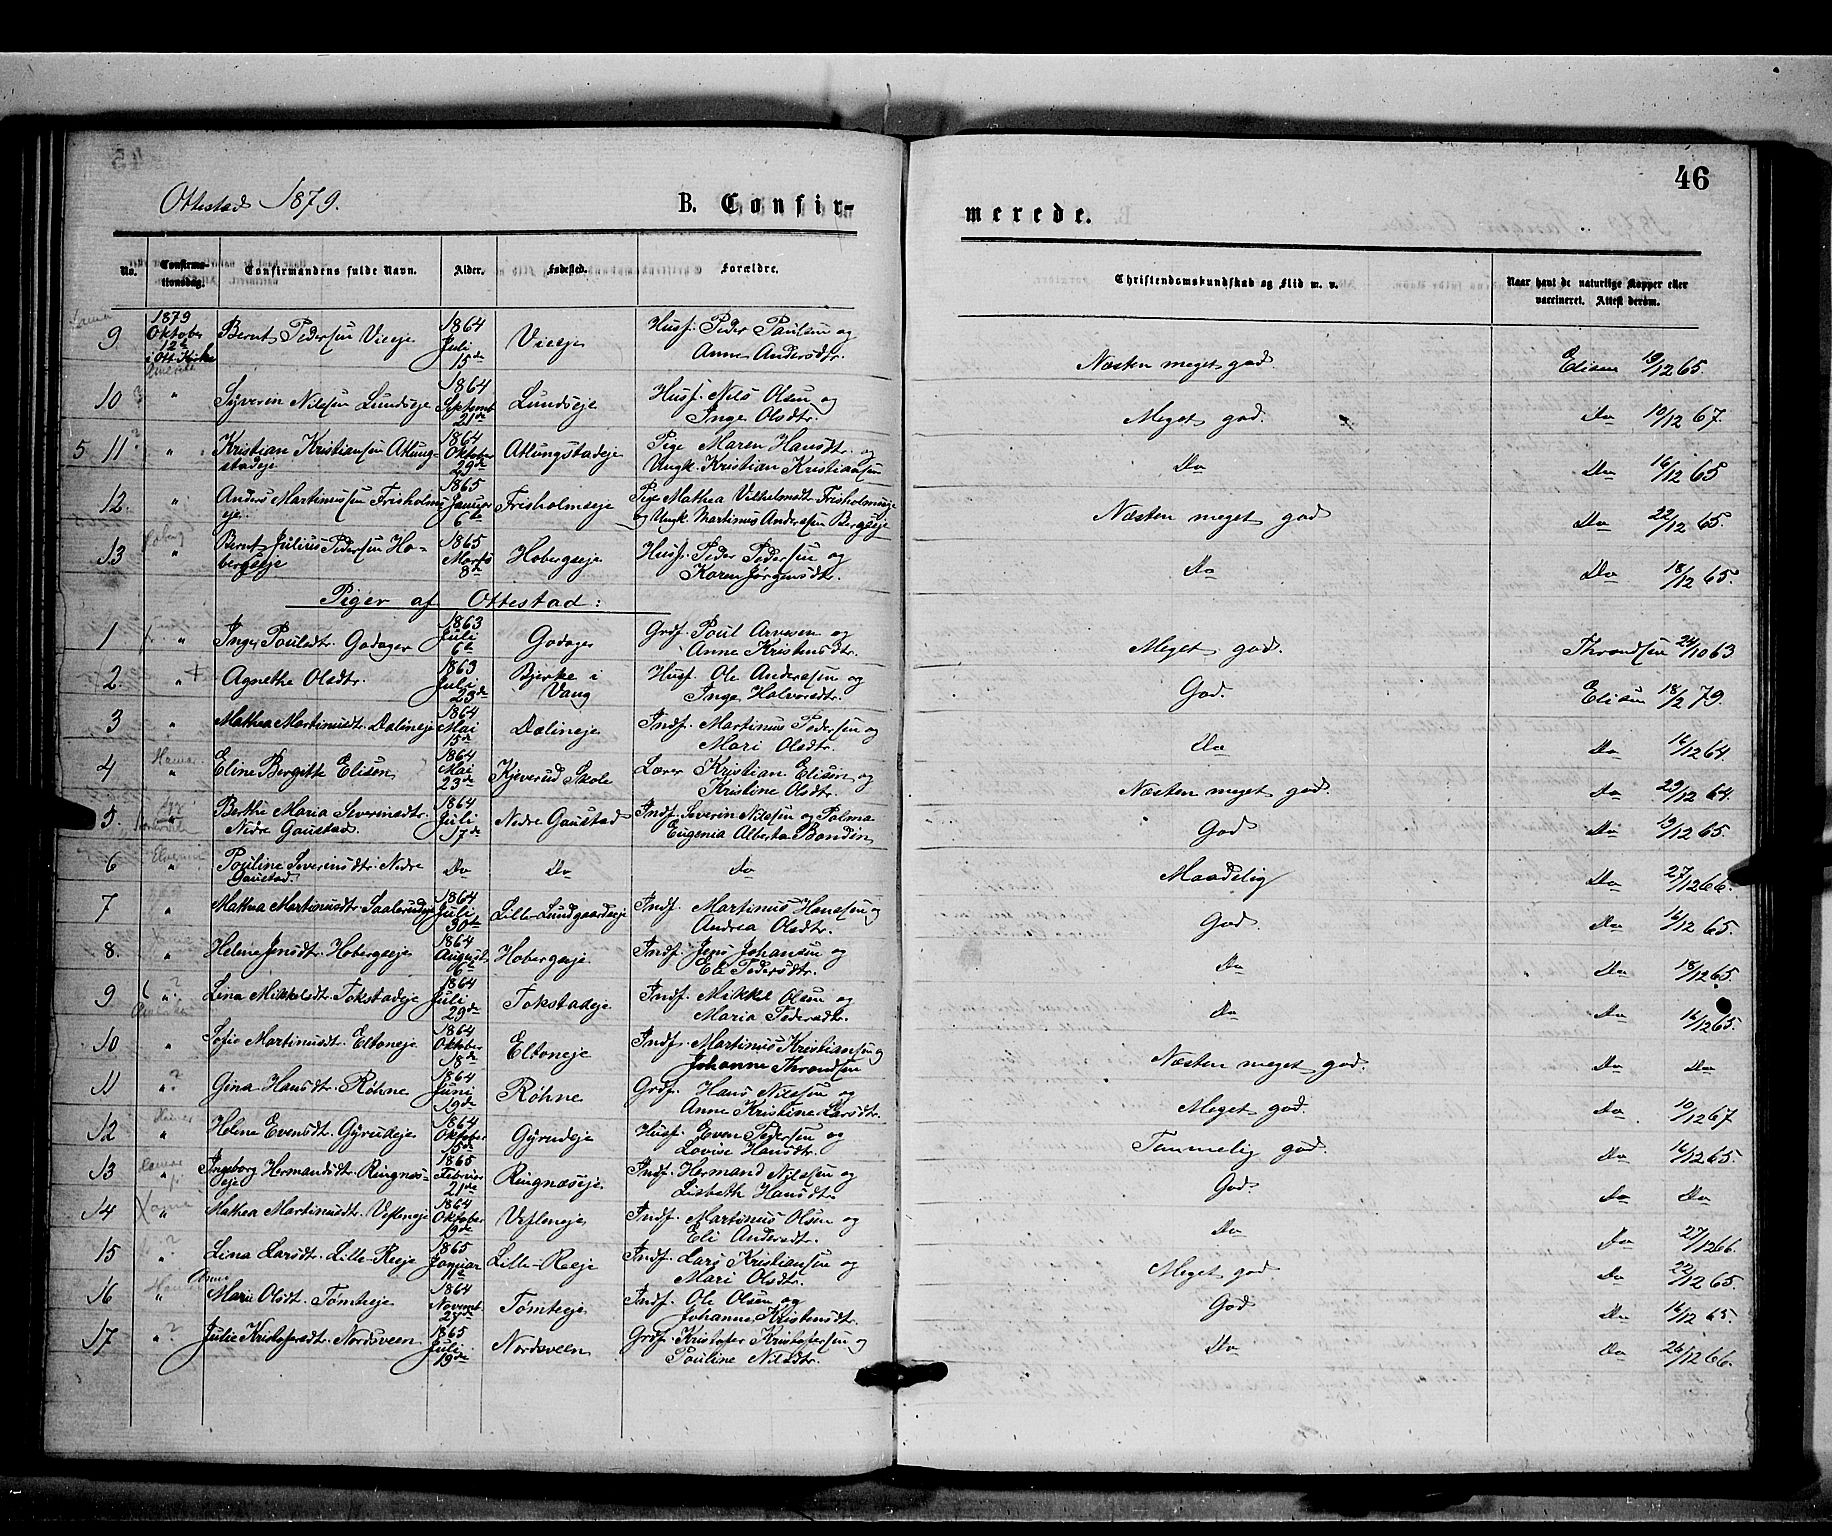 46
Ottestad 1879.
B. Confir-
merede.
No. Confirmationsdag. Confirmandens fulde Navn. Alder. Fødested. Forældre. Christendomskundskab og Flid m. v. Naar havt de naturlige Kopper eller vaccineret. Attest derom.
9 1879 Oktober 12te i Ott. Kirke Bernt Pedersen Vieeje 1864 Juli 15de Vieeje Husf. Peder Paulsen og Anne Andersdtr. Næsten meget god. Elisen 19/12 65.
10 " Syveren Nilssen Lundseje 1864 Septemb. 21de Lundseje Husf. Nils Olsen og Inge Olsdtr. Meget god. Do 10/12 67.
5 11 " Kristian Kristiansen Atlungstadeje 1864 Oktober 29de Atlungstadeje Pige Maren Hansdtr. og Ungk. Kristian Kristiansen Do Do 16/12 65
12. " Anders Martinussen Frisholmseje 1865 Januar 6te Frisholmseje Pige Mathea Vilhelmsdtr. Frisholmseje og Ungk. Martinus Andersen Bergseje Næsten meget god Do 22/12 65.
13 " Bernt Julius Pedersen Hobergseje 1865 Marts 8de Hobergseje Husf. Peder Pedersen og Karen Jørgensdtr. Do Do 18/12 65.
Piger af Ottestad:
1 " Inger Poulsdtr. Godager 1863 Juli 6te Godager Grdf. Poul Arvesen og Anne Kristensdtr. Meget god. Throndsen 24/10 63
2. " Agnethe Olsdtr. 1863 Juli 23de Bjerke i Vang Husf. Ole Andersen og Inge Halvorsdtr. God. Elisen 18/2 79.
3 " Mathea Martinusdtr. Dalineje 1864 Mai 15de Dalineje Indf. Martinus Pedersen og Mari Olsdtr. Do Do 16/12 64.
4 " Eline Bergitte Elisen 1864 Mai 23de Kjeverud Skole Lærer Kristian Elisen og Kristine Olsdtr. Næsten meget god. Do 23/12 64.
5. " Berthe Maria Severinsdtr. Nedre Gaustad 1864 Juli 17de Nedre Gaustad Indf. Severin Nilssen og Palma Eugenia Alberta Bondin God Do 19/12 65
6 " Pouline Severinsdtr. Nedre Gaustad. Do Do Do Maadelig Do 27/12 66.
7 " Mathea Martinusdtr. Saalerudeje 1864 Juli 30te Lille-Lundgaardseje Indf. Martinus Hanssen og Andrea Olsdtr. God. Do 16/12 65.
8. " Helene Jensdtr. Hobergseje 1864 August 6te Hobergseje Indf. Jens Johansen og Eli Pedersdtr. Do Do 18/12 65.
9 " Lina Mikkelsdtr. Tokstadeje 1864 Juli 29de Tokstadeje Indf. Mikkel Olsen og Maria Pedersdtr. Do Do 16/12 65.
10 " Sofie Martinusdtr. Eltoneje 1864 Oktober 18de Eltoneje Indf. Martinus Kristiansen og Johanne Throndsen Næsten meget god. Do Do
11 " Gina Hansdtr. Røhne 1864 Juni 19de Røhne Grdf. Hans Nilssen og Anne Kristine Larsdtr. Meget god. Do 10/12 67
12 " Helene Evensdt. Gyrudeje 1864 Oktober 15de Gyrudeje Husf. Even Pedersen og Lovise Hansdtr. Temmelig god. Do 16/12 65.
13 " Ingeborg Hermandsdtr. Ringnæseje 1865 Februar 21de Ringnæseje Indf. Hermand Nilssen og Lisbeth Hansdtr. God. Do Do
14 " Mathea Martinusdt. Vesleneje 1864 Oktober 19de Vesleneje Indf. Martinus Olsen og Eli Andersdtr. Do Do 27/12 66.
15 " Lina Larsdt. Lille-Reeje 1865 Januar 11te Lille-Reeje Indf. Lars Kristiansen og Mari Olsdtr. Meget god Do 22/12 65.
16 " Anne Marie Olsdt. Tømteeje 1864 Novemb. 27de Tømteeje Indf. Ole Olsen og Johanne Kristensdtr. God Do 16/12 65.
17 " Julie Kristofersdtr. Nordsveen 1865 Juli 19de Nordsveen Grdf. Kristofer Kristofersen og Pouline Nilsdtr. Do Do 26/12 66.